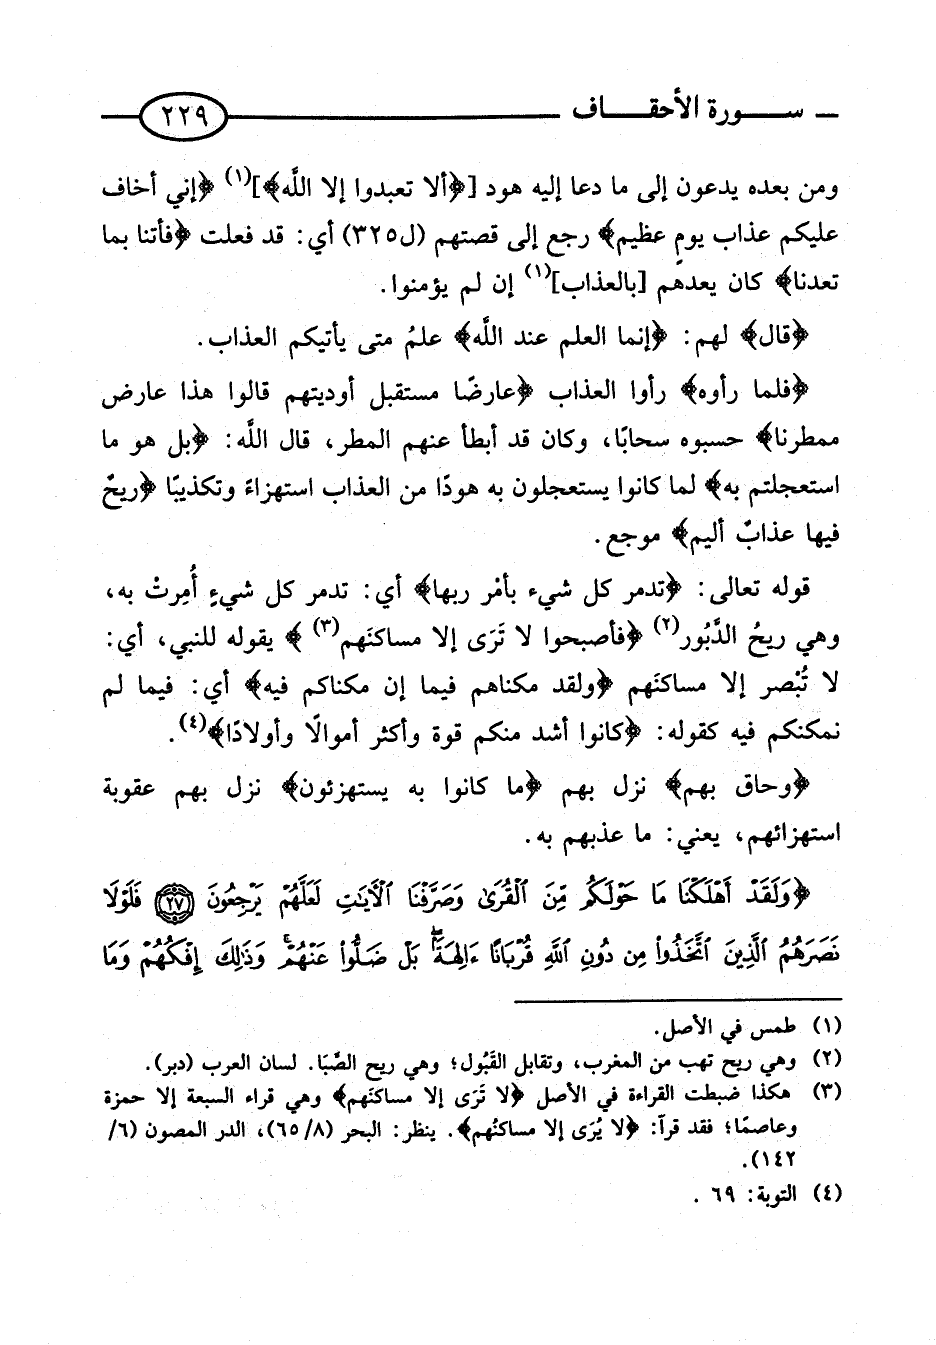 سورة الأحقاف ٢٢٩
ومن بعده يدعون إلى ما دعا إليه هود [﴿ألا تعبدوا إلا اللَّه﴾](١) ﴿إني أخاف
عليكم عذاب يومٍ عظيم﴾ رجع إلى قصتهم (ل٣٢٥) أي: قد فعلت ﴿فأتنا بما
تعدنا﴾ كان يعدهم [بالعذاب](١) إن لم يؤمنوا.
﴿قال﴾ لهم: ﴿إنما العلم عند اللَّه﴾ علمُ متى يأتيكم العذاب.
﴿فلما رأوه﴾ رأوا العذاب ﴿عارضًا مستقبل أوديتهم قالوا هذا عارض
ممطرنا﴾ حسبوه سحابًا، وكان قد أبطأ عنهم المطر، قال اللَّه: ﴿بل هو ما
استعجلتم به﴾ لما كانوا يستعجلون به هودًا من العذاب استهزاءً وتكذيبًا ﴿ريحٌ
فيها عذابٌ أليم﴾ موجع.
قوله تعالى: ﴿تدمر كل شيء بأمْر ربها﴾ أي: تدمر كل شيءٍ أُمِرتْ به،
وهي ريحُ الدَّبُور(٢) ﴿فأصبحوا لا تَرَى إلا مساكنَهم(٣)﴾ يقوله للنبي، أي:
لا تُبْصر إلا مساكنَهم ﴿ولقد مكناهم فيما إن مكناكم فيه﴾ أي: فيما لم
نمكنكم فيه كقوله: ﴿كانوا أشد منكم قوة وأكثر أموالًا وأولادًا﴾(٤).
﴿وحاق بهم﴾ نزل بهم ﴿ما كانوا به يستهزئون﴾ نزل بهم عقوبة
استهزائهم، يعني: ما عذبهم به.
﴿وَلَقَدْ أَهْلَكْنَا مَا حَوْلَكُم مِّنَ ٱلْقُرَىٰ وَصَرَّفْنَا ٱلْآيَٰتِ لَعَلَّهُمْ يَرْجِعُونَ ٢٧ فَلَوْلَا
نَصَرَهُمُ ٱلَّذِينَ ٱتَّخَذُوا۟ مِن دُونِ ٱللَّهِ قُرْبَانًا ءَالِهَةًۢ بَلْ ضَلُّوا۟ عَنْهُمْ ۚ وَذَٰلِكَ إِفْكُهُمْ وَمَا
(١) طمس في الأصل.
(٢) وهي ريح تهب من المغرب، وتقابل القَبُول؛ وهي ريح الصَّبَا. لسان العرب (دبر).
(٣) هكذا ضبطت القراءة في الأصل ﴿لا تَرَى إلا مساكنَهم﴾ وهي قراء السبعة إلا حمزة
وعاصمًا؛ فقد قرآ: ﴿لا يُرَى إلا مساكنُهم﴾. ينظر: البحر (٨/ ٦٥)، الدر المصون (٦/
١٤٢).
(٤) التوبة: ٦٩.